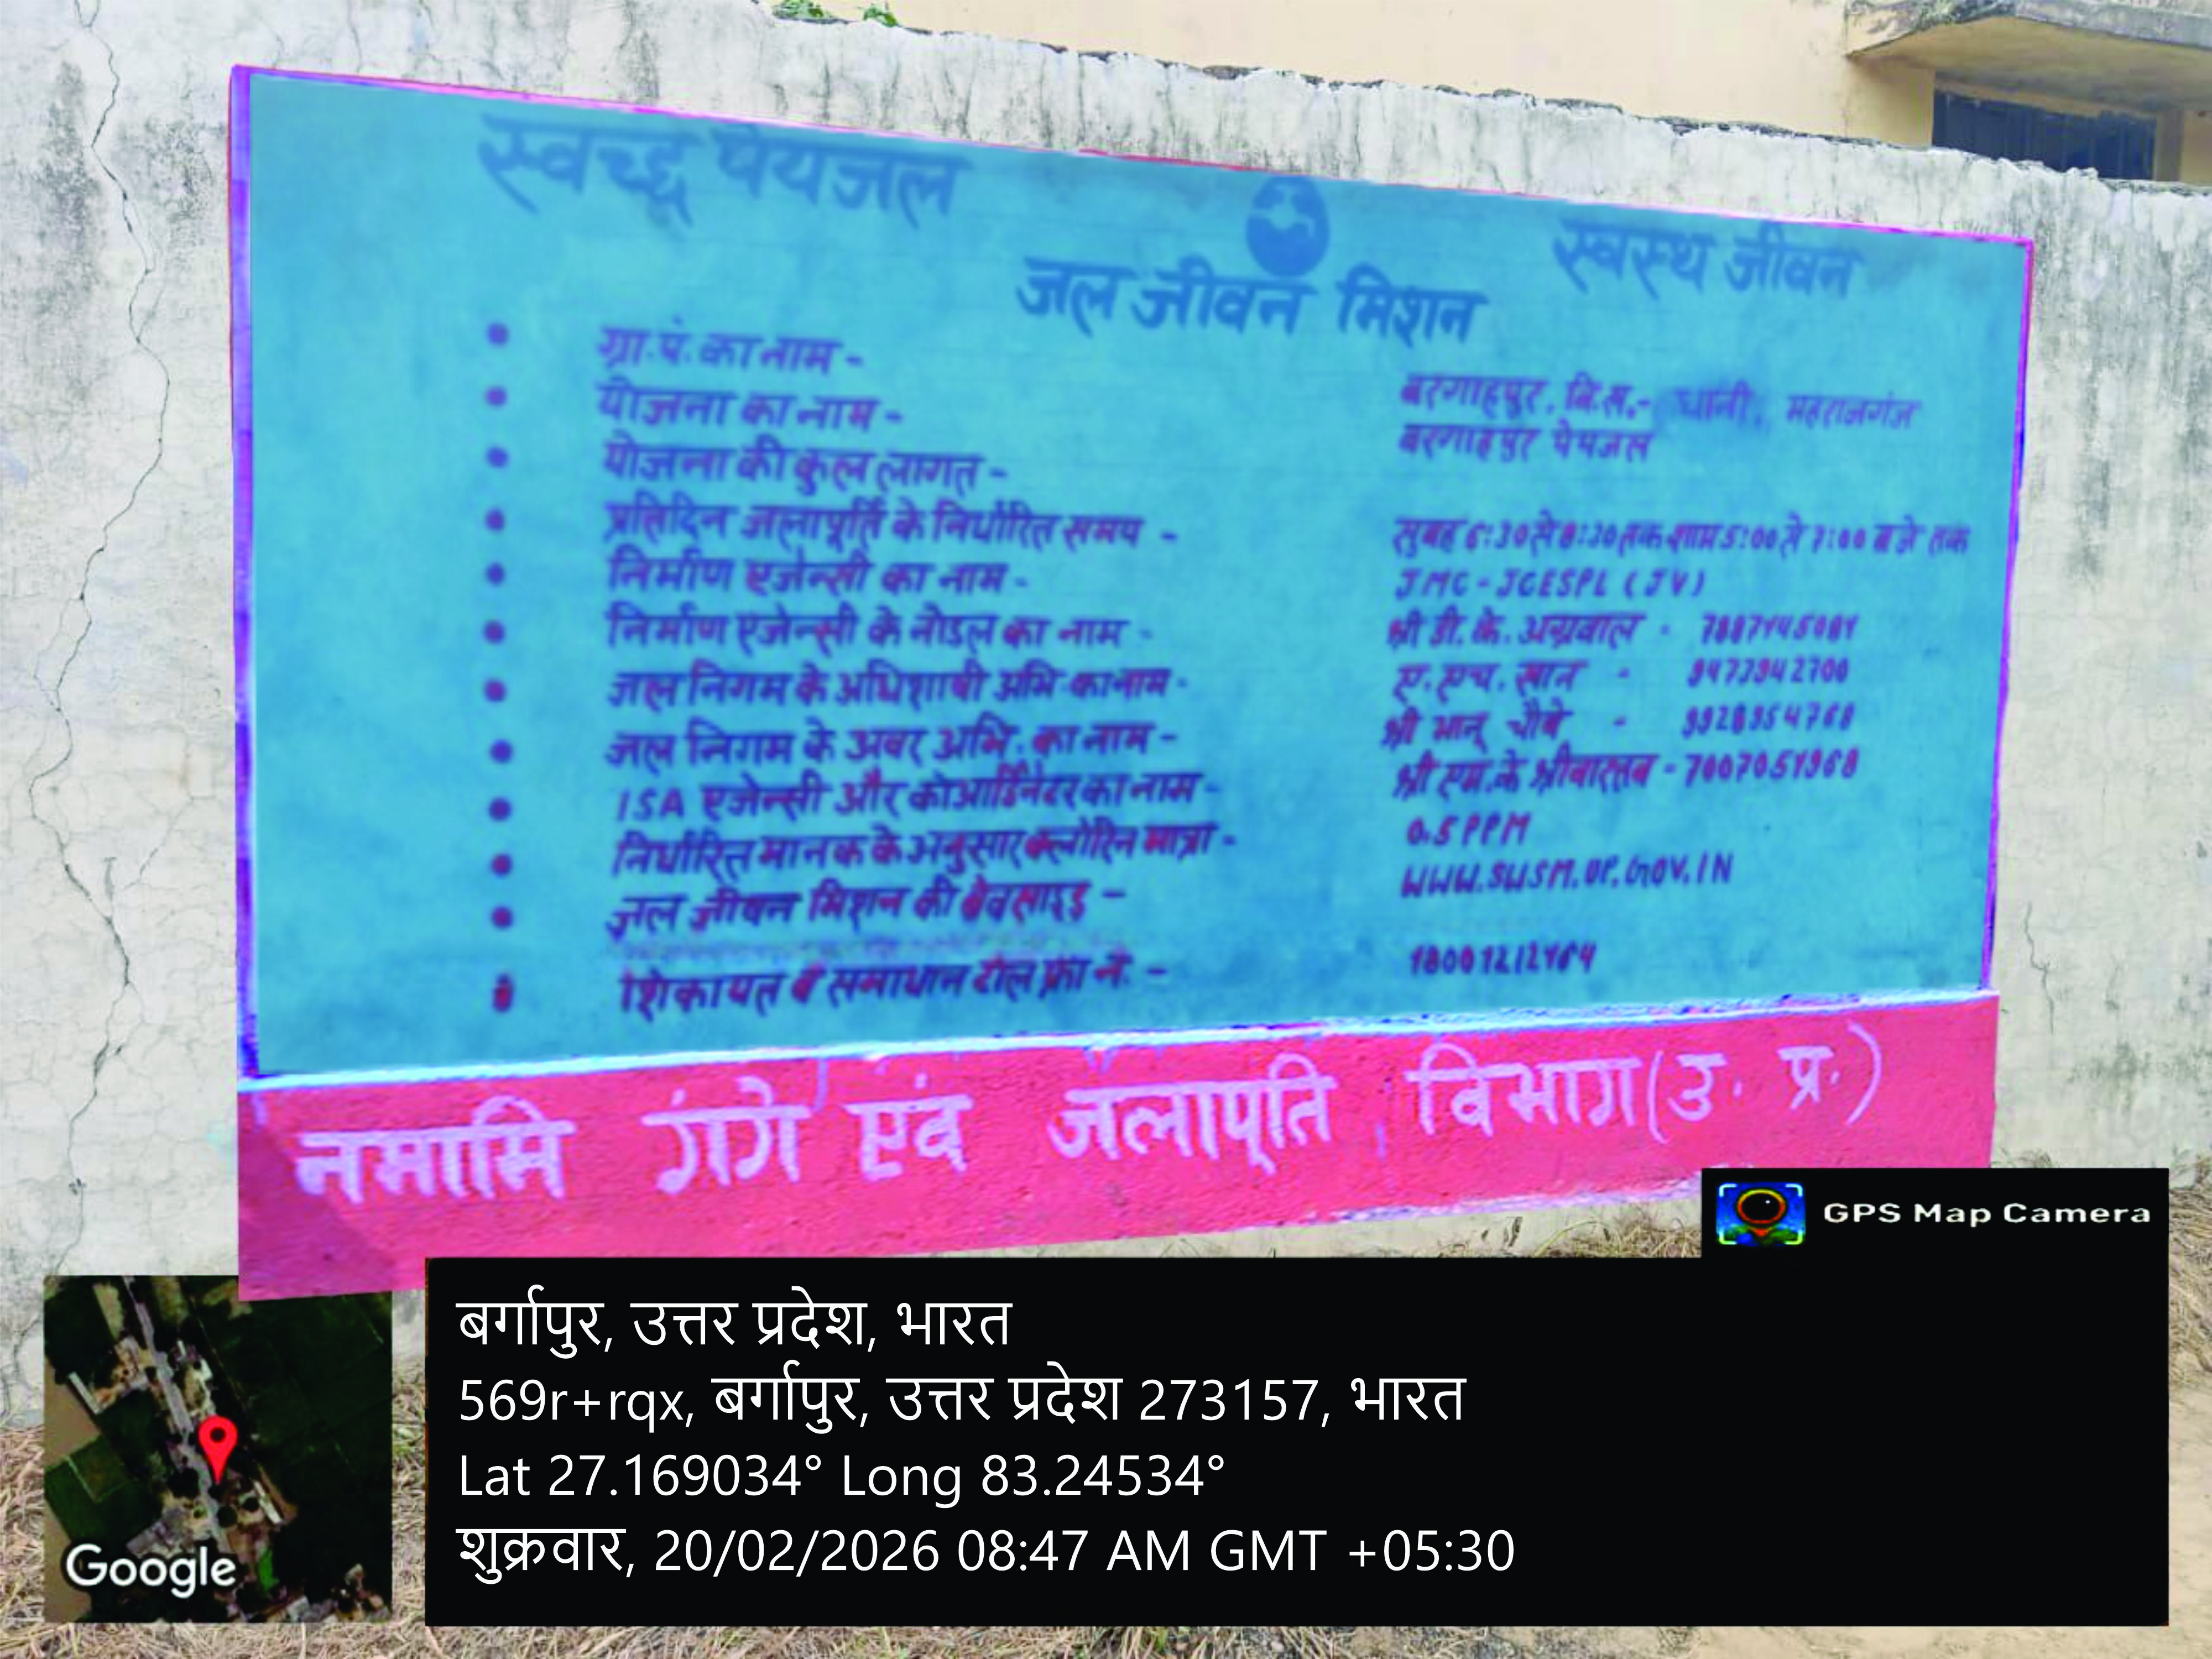 स्वच्छ पेयजल
स्वस्थ जीवन
जल जीवन मिशन
ग्रा.पं. का नाम - बरगाहपुर. वि.स.- धानी, महराजगंज
योजना का नाम - बरगाहपुर पेयजल
योजना की कुल लागत -
प्रतिदिन जलापूर्ति के निर्धारित समय - सुबह 6:30 से 8:30 तक शाम 5:00 से 7:00 बजे तक
निर्माण एजेन्सी का नाम - JMC - JGESPL (JV)
निर्माण एजेन्सी के नोडल का नाम - श्री डी. के. अग्रवाल -
जल निगम के अधिशाषी अभि. का नाम - ए. एच. खान -
जल निगम के अवर अभि. का नाम - श्री भानू चौबे -
ISA एजेन्सी और कोआर्डिनेटर का नाम - श्री एम.के श्रीवास्तव - 7007051968
निर्धारित मानक के अनुसार क्लोरिन मात्रा - 0.5 PPM
जल जीवन मिशन की वेवसाइड - WWW.SWSM.UP.GOV.IN
शिकायत व समाधान टोल फ्री नं. -
नमामि गंगे एवं जलापूति विभाग (उ. प्र.)
GPS Map Camera
बर्गापुर, उत्तर प्रदेश, भारत
569r+rqx, बर्गापुर, उत्तर प्रदेश 273157, भारत
Lat 27.169034° Long 83.24534°
शुक्रवार, 20/02/2026 08:47 AM GMT +05:30
Google